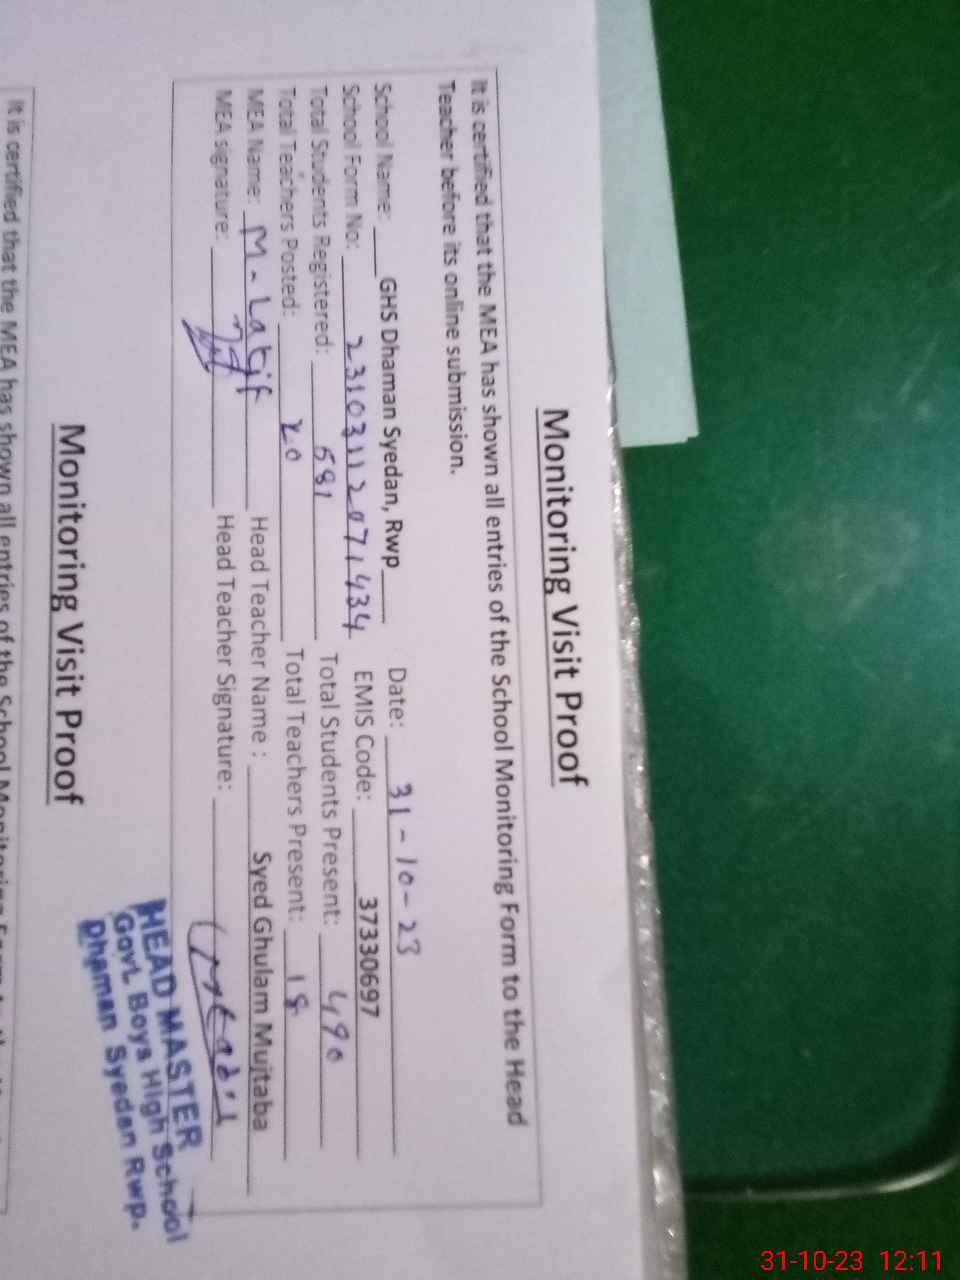 Monitoring Visit Proof
It is certified that the MEA has shown all entries of the School Monitoring Form to the Head
Teacher before its online submission.
School Name: GHS Dhaman Syedan, Rwp Date: 31-10-23
School Form No: 2310311207 1434 EMIS Code: 37330697
Total Students Registered: 581 Total Students Present: 490
Total Teachers Posted: 20 Total Teachers Present: 18
MEA Name: M-Latif Head Teacher Name : Syed Ghulam Mujtaba
MEA signature: Head Teacher Signature:
HEAD MASTER
Govt. Boys High School
Dhaman Syedan Rwp.
Monitoring Visit Proof
It is certified that the MEA has shown all entries of the School Monitoring Form
31-10-23 12:11